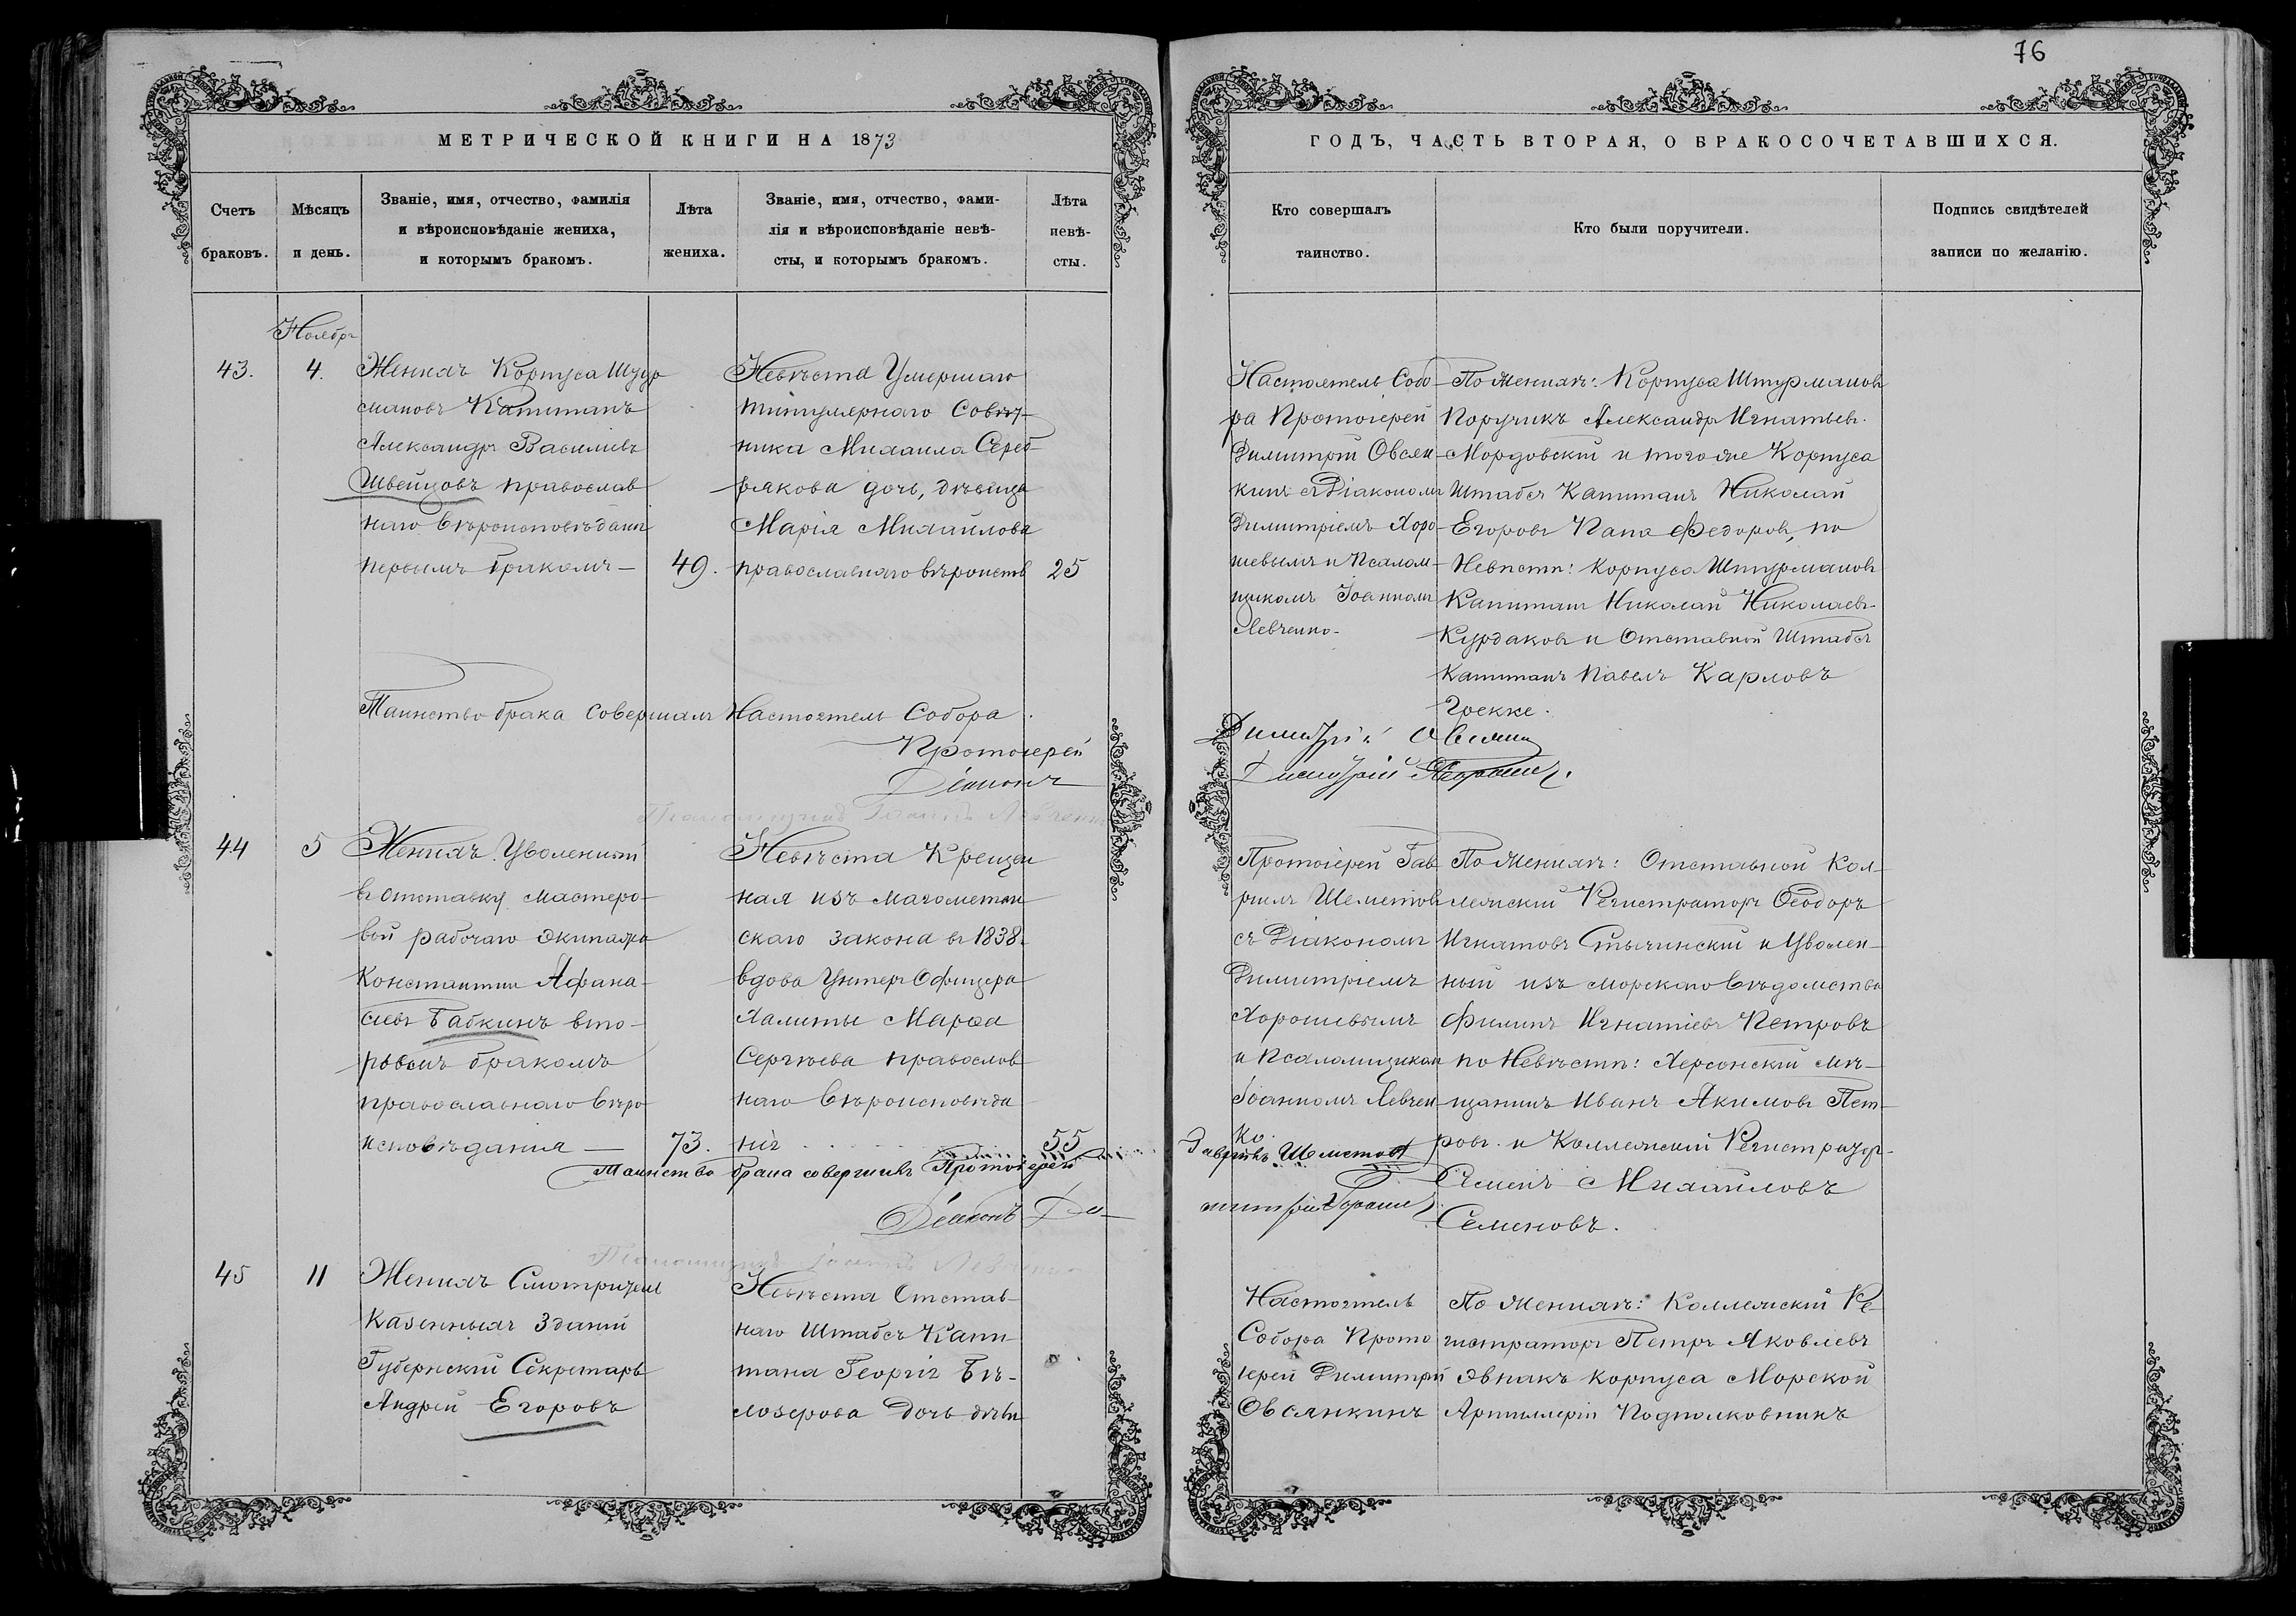 76
МЕТРИЧЕСКОЙ КНИГИ НА 1873
ГОДЪ, ЧАСТЬ ВТОРАЯ, О БРАКОСОЧЕТАВШИХСЯ.
Счетъ
браковъ.
Мѣсяцъ
и день.
Званіе, имя, отчество, фамилія
и вѣроисповѣданіе жениха,
и которымъ бракомъ.
Лѣта
жениха.
Званіе, имя, отчество, фами-
лія и вѣроисповѣданіе невѣ-
сты, и которымъ бракомъ.
Лѣта
невѣ-
сты.
Кто совершалъ
таинство.
Кто были поручители.
Подпись свидѣтелей
записи по желанію.
Ноябрь
43.
4.
Женихъ Корпуса Штур
мановъ Капитанъ
Александръ Васильевъ
Швейцовъ православ
наго вѣроисповѣдані
первымъ бракомъ —
49.
Невѣста Умершаго
титулярнаго Совѣт-
ника Михаила Сереб-
рякова дочь, дѣвица
Марія Михайлова
православнаго вѣроиспов
25
Настоятель Собо-
ра Протоіерей
Димитрій Овсян-
кинъ съ Діакономъ
Димитріемъ Хоро-
шевымъ и Псалом-
щикомъ Іоанномъ
Левченко.
По Женихѣ: Корпуса Штурмановъ
Поручикъ Александръ Игнатьевъ
Мордовскій и того же Корпуса
Штабсъ Капитанъ Николай
Егоровъ Папа Федоровъ, по
Невѣстѣ: Корпуса Штурмановъ
Капитанъ Николай Николаевъ
Курдаковъ и Отставной Штабсъ
Капитанъ Павелъ Карловъ
Грекке.
Таинство брака совершалъ Настоятель Собора
Протоіерей
Діаконъ
Псаломщикъ Іоаннъ Левченко
Димитрій Овсянкинъ
Димитрій Хорошевъ.
44
5
Женихъ Уволенный
въ отставку мастеро-
вой рабочаго экипажа
Константинъ Афана-
сьевъ Бабкинъ вто-
рымъ бракомъ
православнаго вѣро
исповѣданія —
73.
Невѣста Крещен
ная изъ магометан
скаго закона въ 1838.
вдова Унтеръ Офицера
Халиты Марѳа
Сергѣева православ
наго вѣроисповѣда
нія
55
Протоіерей Гав
ріилъ Шеметовъ
съ Діакономъ
Димитріемъ
Хорошевымъ
и Псаломщикомъ
Іоанномъ Левчен
ко.
По Женихѣ: Отставной Кол-
лежскій Регистраторъ Ѳеодоръ
Игнатовъ Стычинскій и Уволен-
ный изъ морскаго вѣдомства
Филипъ Игнатіевъ Петровъ
по Невѣстѣ: Херсонскій мѣ-
щанинъ Иванъ Акимовъ Пет-
ровъ. и Коллежскій Регистраторъ
Семенъ Михайловъ
Семеновъ.
Таинство брака совершилъ Протоіерей
Гавріилъ Шеметовъ
Діаконъ Ди-
митрій Хорошев
Псаломщикъ Іоаннъ Левченко
45
11
Женихъ Смотритель
Казенныхъ Зданій
Губернскій Секретарь
Андрей Егоровъ
Невѣста Отстав-
наго Штабсъ Капи-
тана Георгія Бѣ-
лозерова дочь дѣви
Настоятель
Собора Прото
іерей Димитрій
Овсянкинъ
По Женихѣ: Коллежскій Ре
гистраторъ Петръ Яковлевъ
Эвпакъ Корпуса Морской
Артиллеріи Подполковникъ